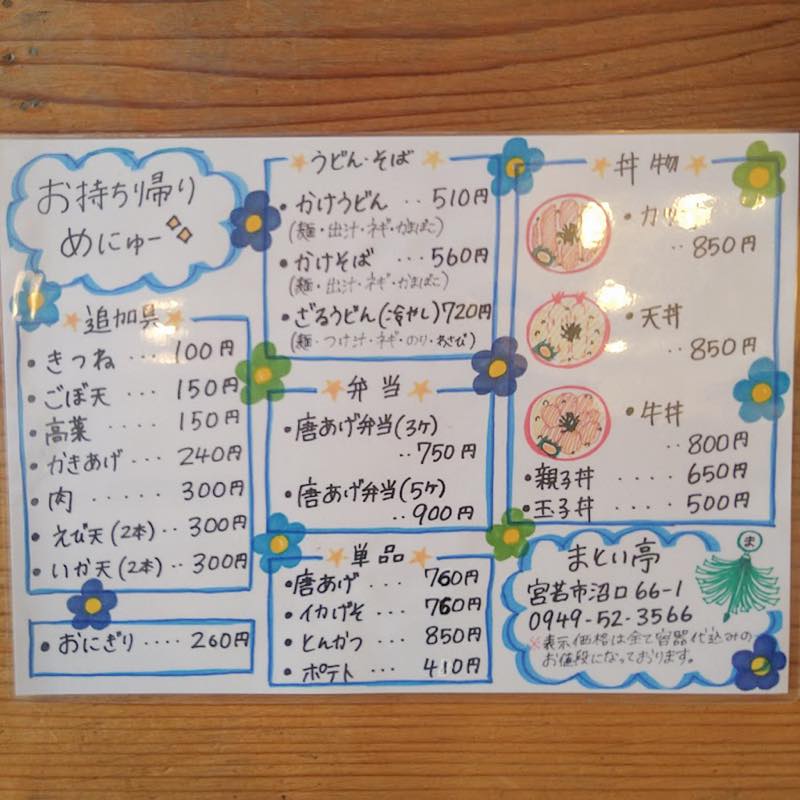 お持ち帰り
めにゅー
追加具
・きつね … 100円
・ごぼ天 … 150円
・高菜 …… 150円
・かきあげ … 240円
・肉 ….. 300円
・えび天(2本)‥300円
・いか天(2本)‥300円
・おにぎり …. 260円
うどん・そば
・かけうどん ‥510円
(麺・出汁・ネギ・かまぼこ)
・かけそば ‥560円
(麺・出汁・ネギ・かまぼこ)
・ざるうどん(冷やし)720円
(麺・つけ汁・ネギ・のり・わさび)
弁当
・唐あげ弁当(3ヶ)
‥750円
・唐あげ弁当(5ヶ)
‥900円
単品
・唐あげ …. 760円
・イカげそ …. 760円
・とんかつ … 850円
・ポテト … 410円
丼物
・カツ
‥850円
・天丼
‥850円
・牛丼
‥800円
・親子丼 …. 650円
・玉子丼 …. 500円
ま
まとい亭
宮若市沼口66-1
0949-52-3566
※表示価格は全て容器代込みの
お値段になっております。